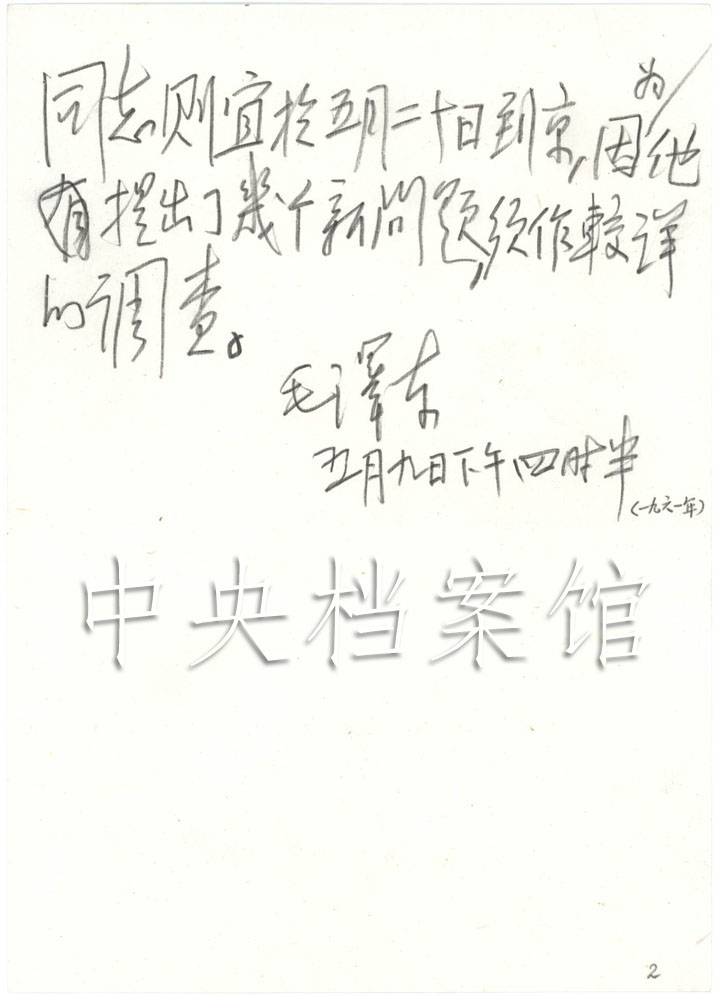 同志则宜於五月二十日到京,因为他
有提出了幾个新问题,须作較详
的调查。
毛泽东
五月九日下午四时半
(一九六一年)
中央档案馆
2